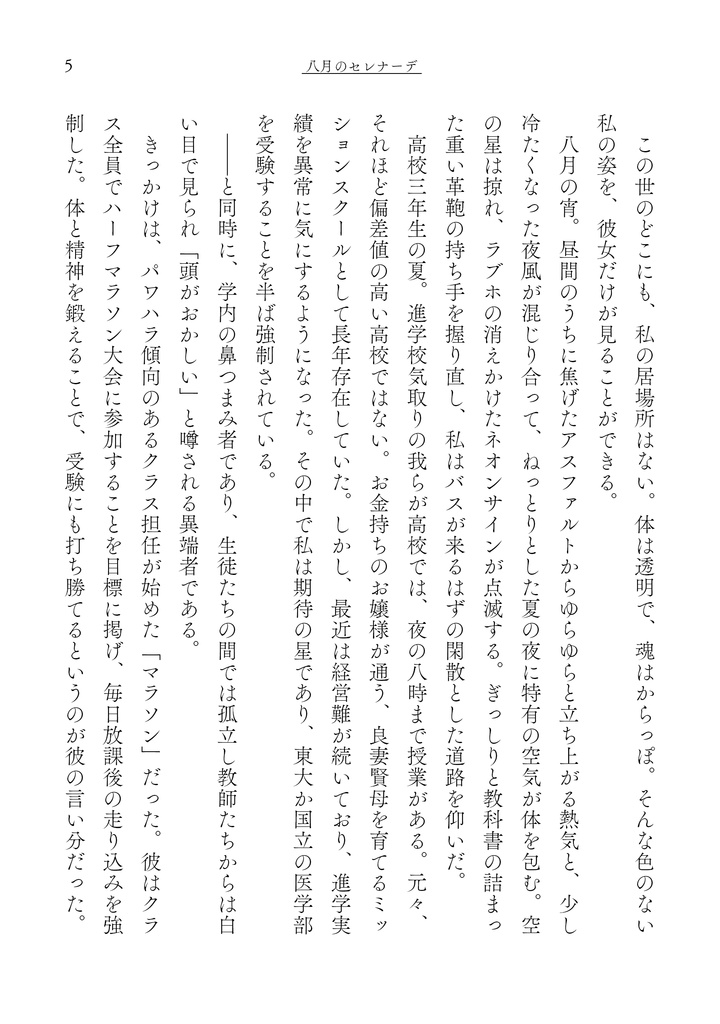 5
八月のセレナーデ
この世のどこにも、私の居場所はない。体は透明で、魂はからっぽ。そんな色のない
私の姿を、彼女だけが見ることができる。
八月の宵。昼間のうちに焦げたアスファルトからゆらゆらと立ち上がる熱気と、少し
冷たくなった夜風が混じり合って、ねっとりとした夏の夜に特有の空気が体を包む。空
の星は掠れ、ラブホの消えかけたネオンサインが点滅する。ぎっしりと教科書の詰まっ
た重い革鞄の持ち手を握り直し、私はバスが来るはずの閑散とした道路を仰いだ。
高校三年生の夏。進学校気取りの我らが高校では、夜の八時まで授業がある。元々、
それほど偏差値の高い高校ではない。お金持ちのお嬢様が通う、良妻賢母を育てるミッ
ションスクールとして長年存在していた。しかし、最近は経営難が続いており、進学実
績を異常に気にするようになった。その中で私は期待の星であり、東大か国立の医学部
を受験することを半ば強制されている。
――と同時に、学内の鼻つまみ者であり、生徒たちの間では孤立し教師たちからは白
い目で見られ「頭がおかしい」と噂される異端者である。
きっかけは、パワハラ傾向のあるクラス担任が始めた「マラソン」だった。彼はクラ
ス全員でハーフマラソン大会に参加することを目標に掲げ、毎日放課後の走り込みを強
制した。体と精神を鍛えることで、受験にも打ち勝てるというのが彼の言い分だった。